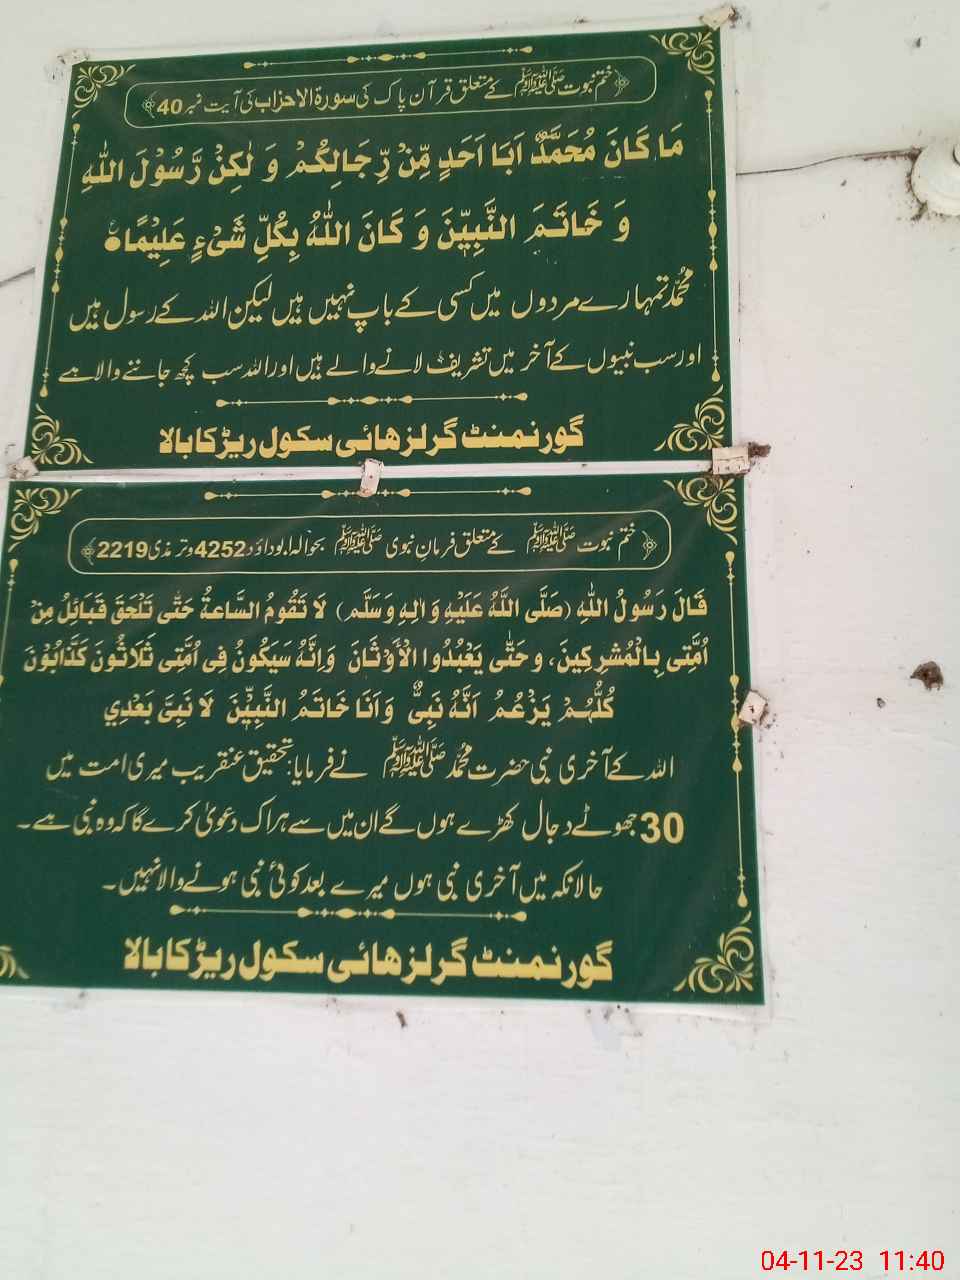 ختم نبوت ﷺ کے متعلق قرآن پاک کی سورۃ الاحزاب کی آیت نمبر 40
مَا كَانَ مُحَمَّدٌ اَبَآ اَحَدٍ مِّنْ رِّجَالِكُمْ وَ لٰكِنْ رَّسُوْلَ اللّٰهِ
وَ خَاتَمَ النَّبِيّٖنَ وَ كَانَ اللّٰهُ بِكُلِّ شَيْءٍ عَلِيْمًا
محمدؐ تمہارے مردوں میں کسی کے باپ نہیں ہیں لیکن اللہ کے رسول ہیں
اور سب نبیوں کے آخر میں تشریف لانے والے ہیں اور اللہ سب کچھ جاننے والا ہے
گورنمنٹ گرلز ھائی سکول ریڑکا بالا
ختم نبوت ﷺ کے متعلق فرمان نبوی ﷺ بحوالہ ابوداؤد 4252 وترمذی 2219
قَالَ رَسُولُ اللّٰهِ (صَلَّى اللَّهُ عَلَيْهِ وَاٰلِهٖ وَسَلَّم) لَا تَقُومُ السَّاعَةُ حَتّٰى تَلْحَقَ قَبَائِلُ مِنْ
اُمَّتِى بِالْمُشْرِكِينَ، وَحَتّٰى يَعْبُدُوا الْأَوْثَانَ وَاِنَّهُ سَيَكُونُ فِى اُمَّتِى ثَلَاثُونَ كَذَّابُوْنَ
كُلُّهُمْ يَزْعُمُ اَنَّهُ نَبِىٌّ وَاَنَا خَاتَمُ النَّبِيّٖنَ لَا نَبِىَّ بَعْدِي
اللہ کے آخری نبی حضرت محمد ﷺ نے فرمایا: تحقیق عنقریب میری امت میں
30 جھوٹے دجال کھڑے ہوں گے ان میں سے ہر اک دعویٰ کرے گا کہ وہ نبی ہے۔
حالانکہ میں آخری نبی ہوں میرے بعد کوئی نبی ہونے والا نہیں۔
گورنمنٹ گرلز ھائی سکول ریڑکا بالا
04-11-23 11:40